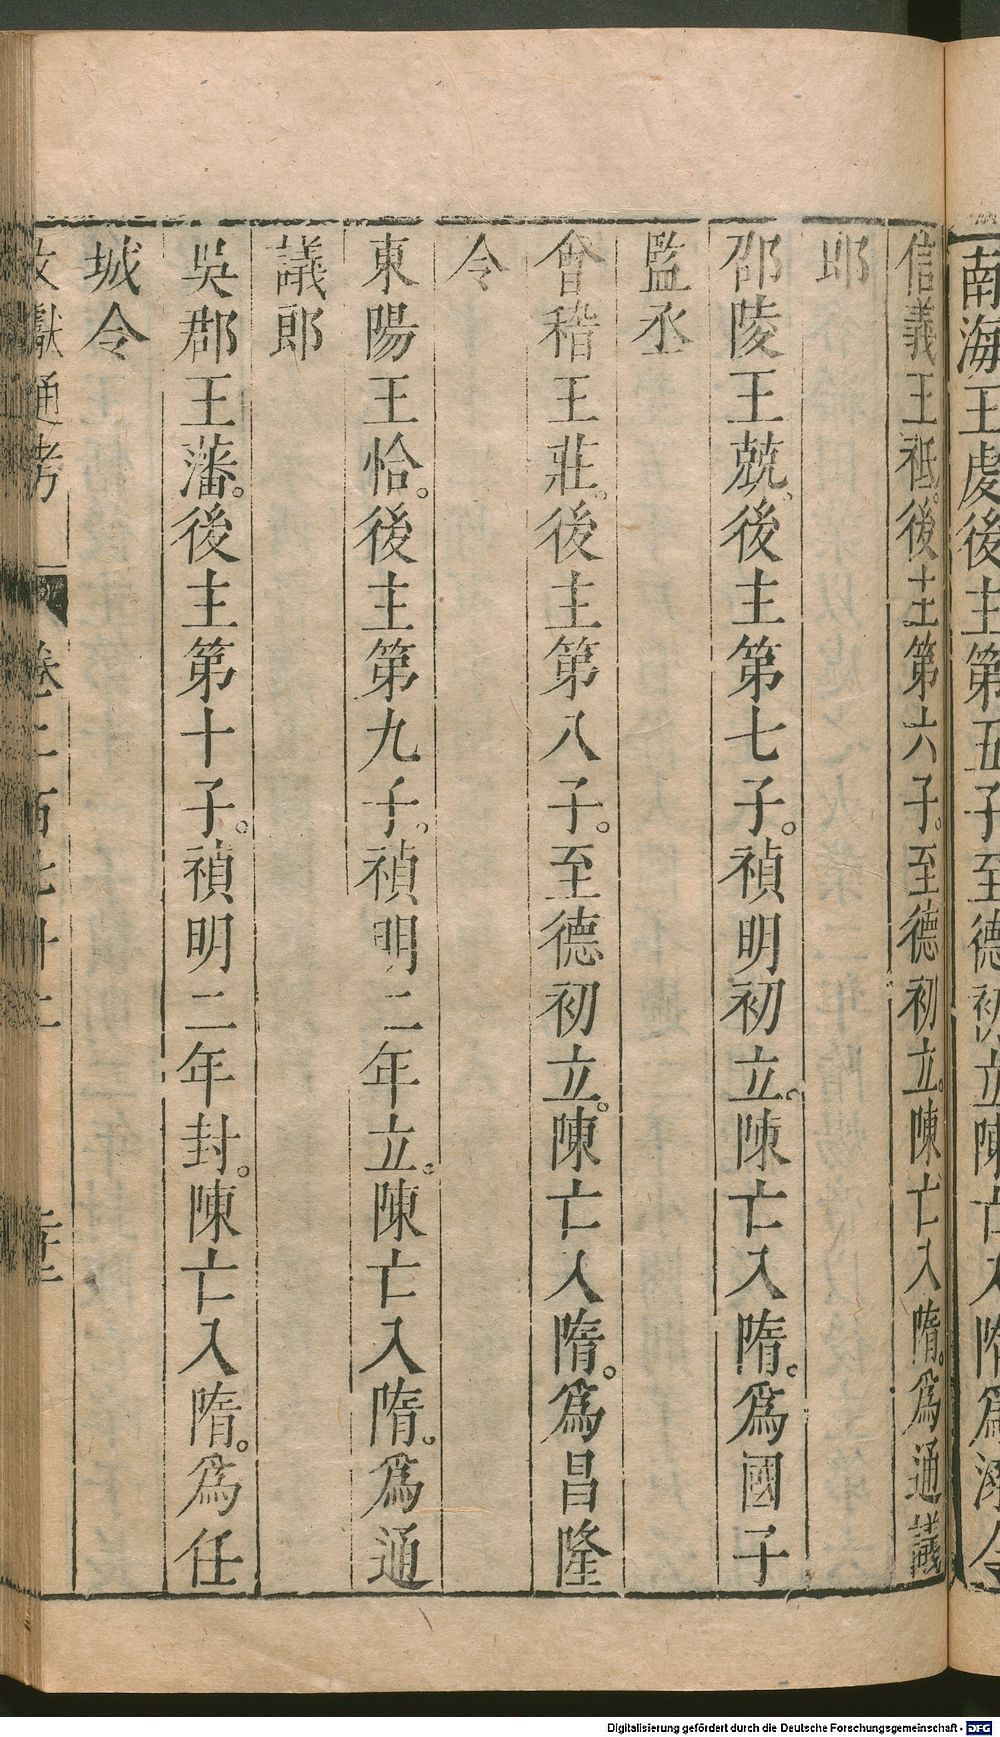 南海王虔後主第五子至德初立陳亡入隋爲涿令
信義王祗。後主第六子。至德初立。陳亡入隋。爲通議
郎
邵陵王兢。後主第七子。禎明初立。陳亡入隋。爲國子
監丞
會稽王莊。後主第八子。至德初立。陳亡入隋。爲昌隆
令
東陽王恮。後主第九子。禎明二年立。陳亡入隋。爲通
議郎
吳郡王藩。後主第十子。禎明二年封。陳亡入隋。爲任
城令
文獻通考 卷二百七十二
Digitalisierung gefördert durch die Deutsche Forschungsgemeinschaft - DFG